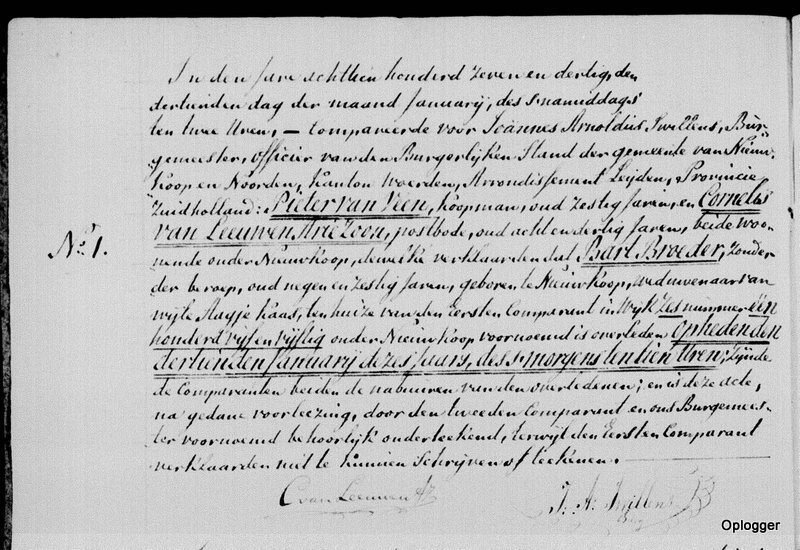 In den Jare achttien honderd zeven en dertig, den
dertienden dag der maand Januarij, des snamiddags
ten twee Uren, — Compareerde voor Joannes Arnoldus Swillens, Bur-
gemeester, Officier van den Burgerlijken Stand der gemeente van Nieuw-
koop en Noorden, Kanton Woerden, Arrondissement Leijden, Provincie
Zuidholland: Pieter van Veen, Koopman, oud Zestig Jaren, en Cornelis
van Leeuwen Arie Zoon, postbode, oud acht en dertig Jaren, beide woo-
No. 1.
nende onder Nieuwkoop, dewelke verklaarden dat Bart Broeder, Zonder
der beroep, oud negen en zestig Jaren, geboren te Nieuwkoop, weduwenaar van
wijle Aagje Kaas, ten huize van den Eersten Comparant in Wijk Zes nummer één
honderd vijf en vijftig onder Nieuwkoop voornoemd is overleden op heden den
dertienden Januarij dezes Jaars, des smorgens ten tien Uren; Zijnde
de Comparanten beiden de nabuuren van den overledenen; en is deze acte,
na gedane voorleezing, door den tweeden Comparant en ons Burgemees-
ter voornoemd behoorlijk onderteekend, terwijl den Eersten Comparant
verklaarden niet te kunnen Schrijven of teekenen.
C van Leeuwen Az
J. A. Swillens
Oplogger